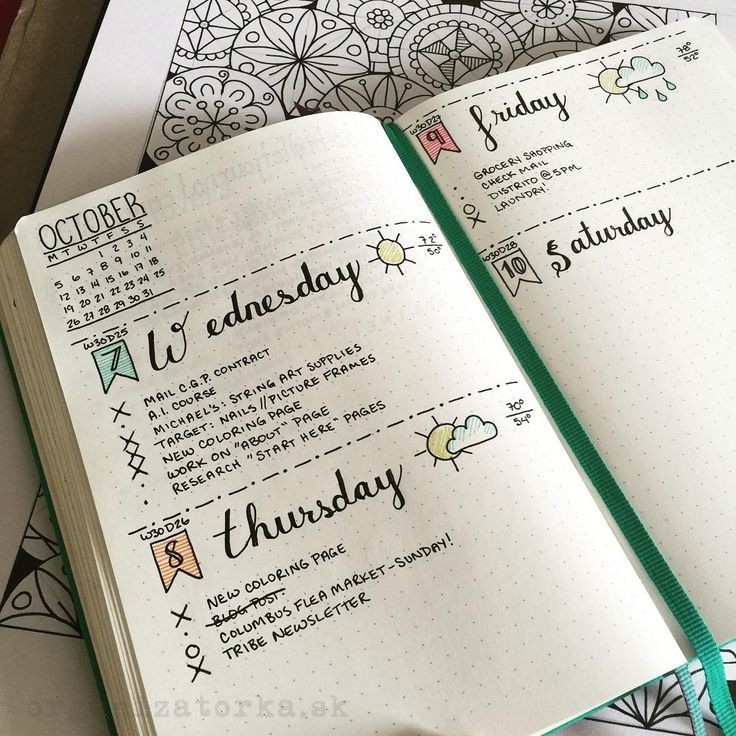 OCTOBER
M T W T F S S
1 2 3 4
5 6 7 8 9 10 11
12 13 14 15 16 17 18
19 20 21 22 23 24 25
26 27 28 29 30 31
W30D25
7 Wednesday
72°
50°
X MAIL C.G.P. CONTRACT
· A.I. COURSE
X MICHAEL'S: STRING ART SUPPLIES
X TARGET: NAILS // PICTURE FRAMES
X NEW COLORING PAGE
X WORK ON "ABOUT" PAGE
· RESEARCH "START HERE" PAGES
W30D26
8 thursday
70°
54°
X NEW COLORING PAGE
· BLOG POST
O COLUMBUS FLEA MARKET-SUNDAY!
X TRIBE NEWSLETTER
W30D27
9 friday
78°
52°
· GROCERY SHOPPING
· CHECK MAIL
O DISTRITO @ 5PM
X LAUNDRY!
W30D28
10 Saturday
organizatorka.sk